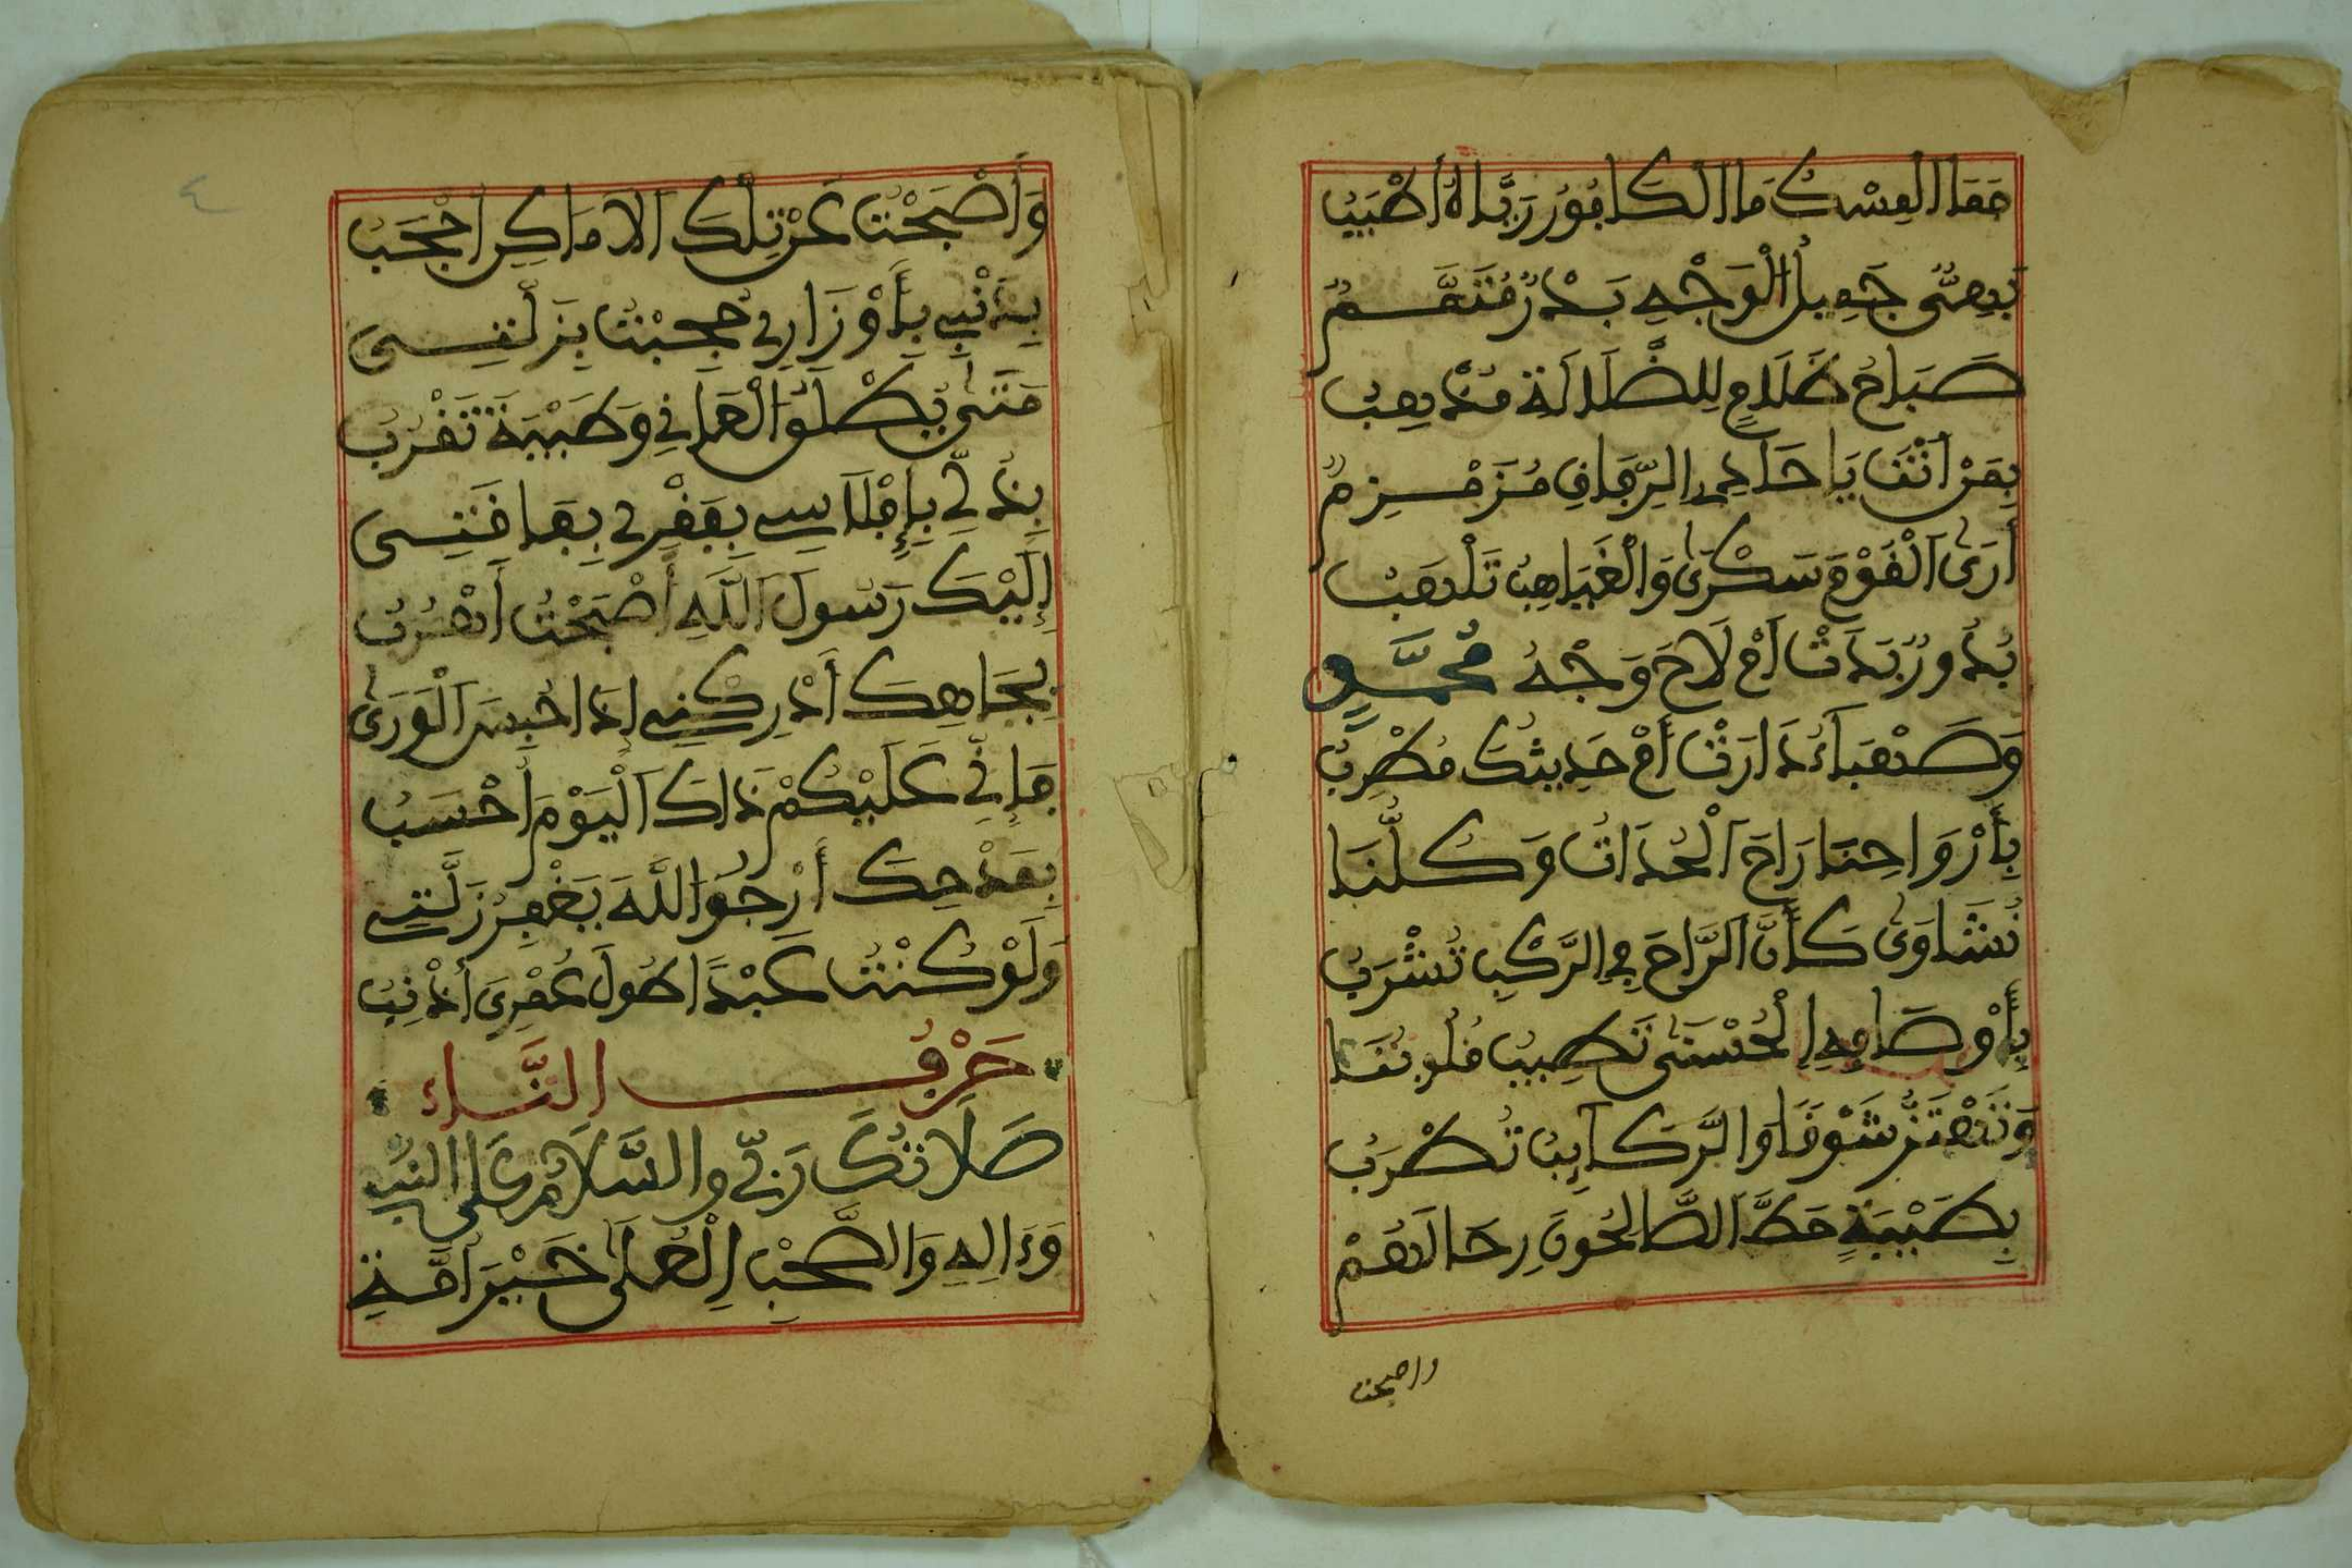 فما المسك ما الكافور رياه أطيب
بهي جميل الوجه بدر متمم
صباح ظلام للضلالة مذهب
بمن أنت يا حادي الرفاق مزمزم
أرى القوم سكرى والغياهب تلهب
بدور بدت أم لاح وجه محمد
وصهباء دارت أم حديثك مطرب
بأرواحنا راح الحدات وكلنا
نشاوى كأن الراح في الركب تشرب
بأوصافه الحسنى تطيب قلوبنا
وتهتز شوقا والركائب تطرب
بطيبة حط الصالحون رحالهم
واصبحت
وَأَصْبَحْتُ عَنْ تِلْكَ الاَمَاكِنِ أُحْجَبُ
بِذَنْبِي بِأَوْزَارِي حُجِبْتُ بِزَلَّتِي
مَتَى يُطْلَقُ الْعَانِي وَطَيْبَةُ تَقْرُبُ
بِذُلِّي بِإِفْلَاسِي بِفَقْرِي بِفَاقَتِي
إِلَيْكَ رَسُولَ اللَّهِ أَصْبَحْتُ أَهْرُبُ
بِجَاهِكَ أَدْرِكْنِي إِذَا حُبِسَ الْوَرَى
فَإِنِّي عَلَيْكُمْ ذَاكَ الْيَوْمَ أُحْسَبُ
بِمَدْحِكَ أَرْجُوا اللَّهَ يَغْفِرُ زَلَّتِي
وَلَوْ كُنْتُ عَبْدًا طُولَ عُمْرِيَ أُذْنِبُ
حَرْفُ التَّاء
صَلَاتُكَ رَبِّي والسَّلَامُ عَلَى النبي
وَءَالِهِ وَالصَّحْبِ الْعُلَى خَيْرَ أُمَّةِ